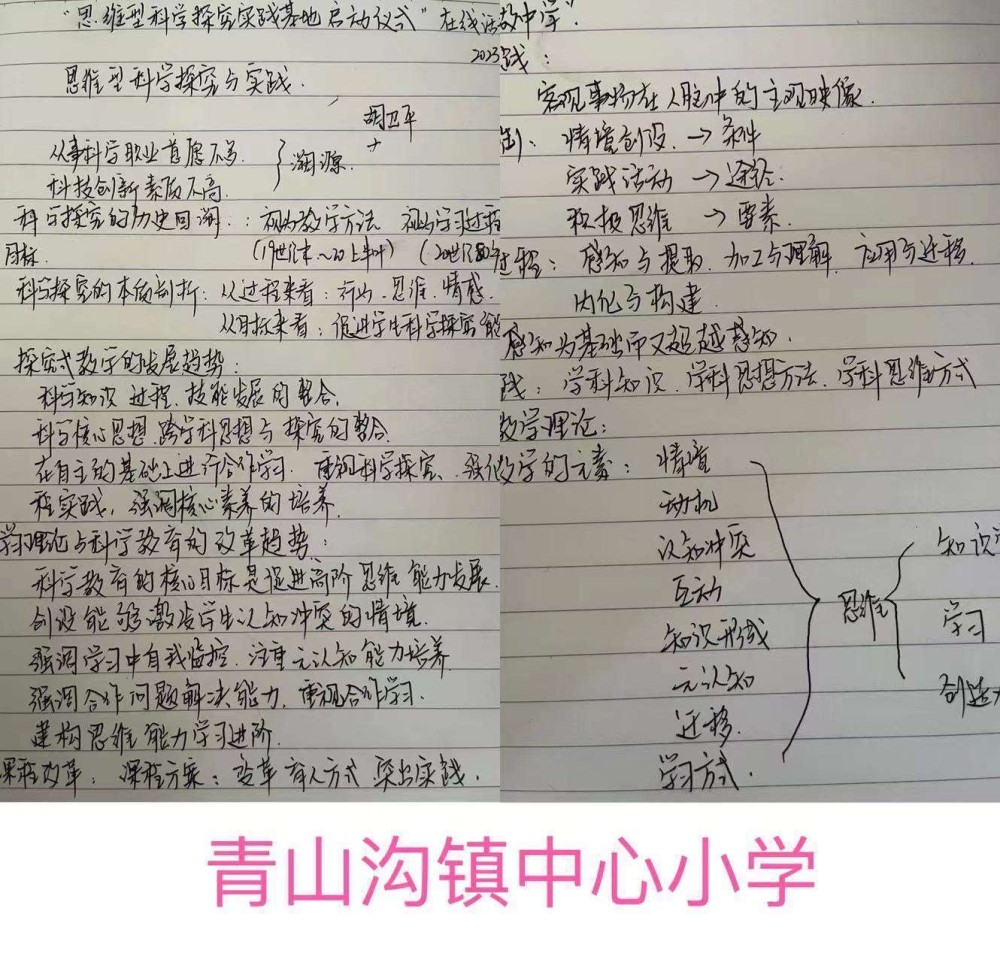 "思维型科学探究实践基地启动仪式"在线活
2023
思维型科学探究与实践.
胡卫平
从事科学职业意愿不高
科技创新素质不高.
溯源.
科学探究的历史回溯.:视为教学方法 视为学习过程
目标. (19世纪末~20上半叶) (20世纪80年
科学探究的本质剖析:从过程来看:行为.思维.情感.
从目标来看:促进学生科学探究能
探究式教学的发展趋势:
科学知识 过程.技能发展的整合.
科学核心思想.跨学科思想与探究的整合.
在自主的基础上进行合作学习.重视科学探究、强化
程实践,强调核心素养的培养.
学习理论与科学教育的改革趋势:
科学教育的核心目标是促进高阶思维能力发展.
创设能够激发学生认知冲突的情境.
强调学习中自我监控.注重元认知能力培养
强调合作问题解决能力,重视合作学习.
建构思维能力学习进阶.
课程改革:课程方案:变革育人方式 突出实践.
教中学".
践:
客观事物在人脑中的主观映像.
制:情境创设→条件
实践活动→途径.
积极思维→要素.
过程:感知与提取.加工与理解.应用与迁移.
内化与构建.
感知为基础而又超越感知.
践:学科知识.学科思想方法.学科思维方式
教学理论:
教学的元素:情境
动机
认知冲突
互动
知识形成
元认知
迁移.
学习方式.
思维
知识
学习
创造
青山沟镇中心小学